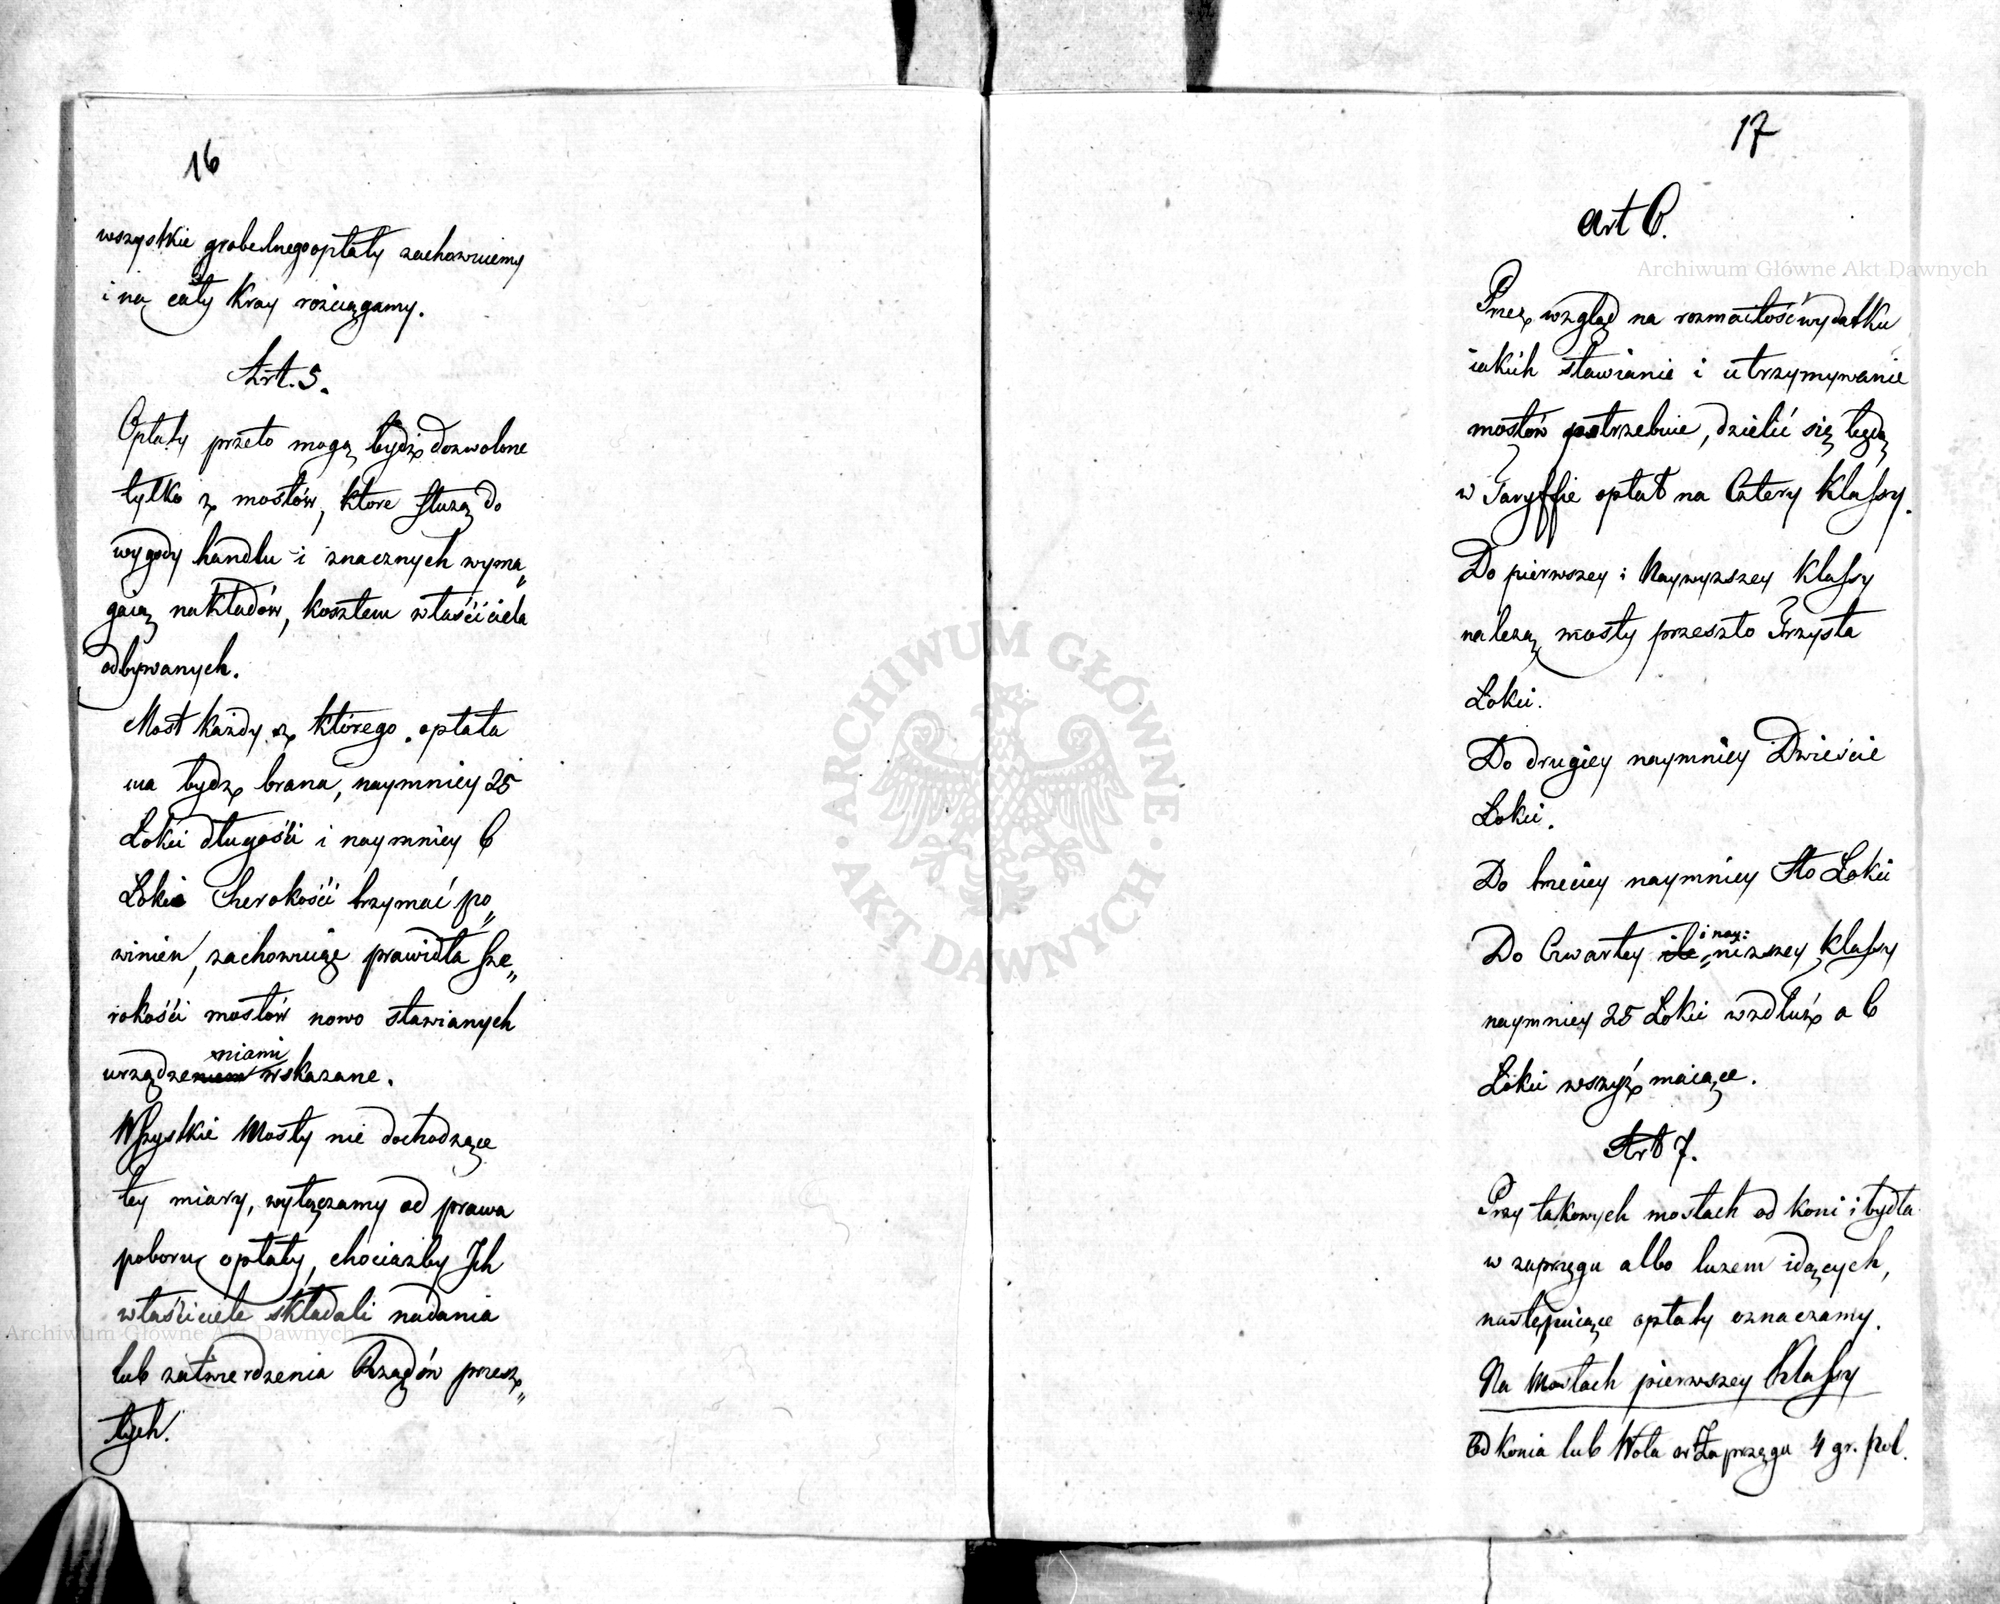 16
wszystkie grobelnego opłaty zachowuiemy
i na cały Kray rościągamy.
Art. 5.
Opłaty przeto mogą bydź dozwolone
tylko z mostów, ktore służą do
wygody handlu i znacznych wyma„
gaią nakładów, kosztem właściciela
odbywanych.
Most każdy z którego opłata
ma bydź brana, naymniey 25
Łokci długości i naymniey 6
Łokci Szerokości trzymać po„
winien, zachowuiąc prawidła sze„
rokości mostów nowo stawianych
niami
urządzeniem wskazane.
Wszystkie Mosty nie dochodzące
tey miary, wyłączamy od prawa
poboru opłaty, chociażby Ich
właściciele składali nadania
lub zatwierdzenia Rządów przesz„
łych.
17
Art 6.
Przez wzgląd na rozmaitość wydatku
iakich stawianie i utrzymywanie
mostów potrzebuie, dzielić się będą
w Taryffie opłat na Cztery klassy.
Do pierwszey i Naywyzszey klassy
należą mosty przeszło Trzysta
Łokci.
Do drugiey naymniey Dwieście
Łokci.
Do trzeciey naymniey Sto Łokci
i nay:
Do Czwartey ile „nizszey klassy
naymniey 25 Łokci wzdłuż a 6
Łokci wszyż maiące.
Art 7.
Przy takowych mostach od koni i bydła
w zaprzęgu albo luzem idących,
następuiące opłaty oznaczamy.
Na Mostach pierwszey klassy
Od konia lub Wołu w Zaprzęgu 4 gr. pol.
Archiwum Główne Akt Dawnych
Archiwum Główne Akt Dawnych
· ARCHIWUM GŁÓWNE · AKT DAWNYCH